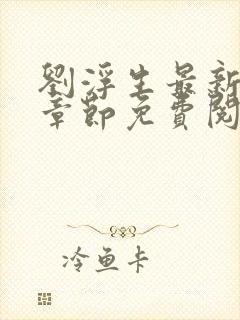 劉浮生最新
章節免費閱
冷魚卡